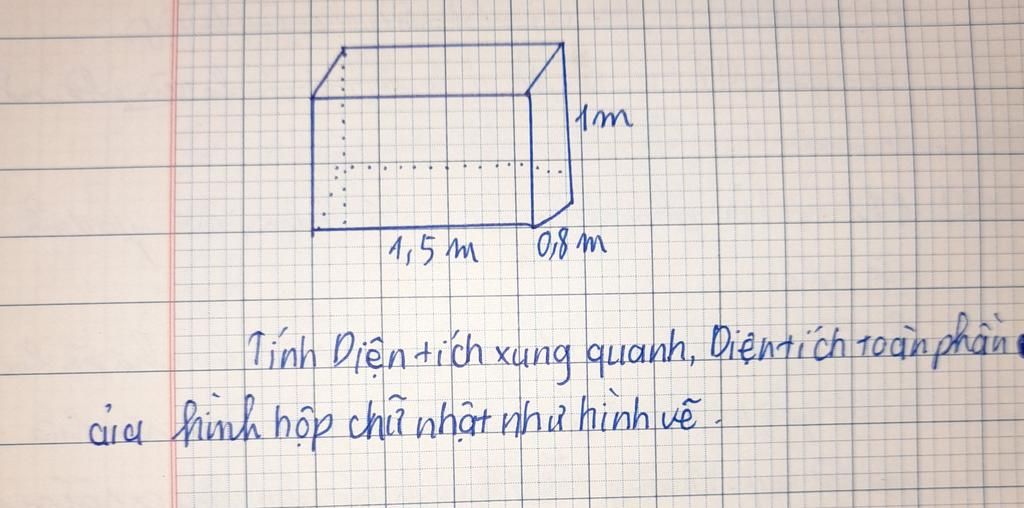 1m
1,5 m
0,8 m
Tính Diện tích xung quanh, Diện tích toàn phần
của hình hộp chữ nhật như hình vẽ.